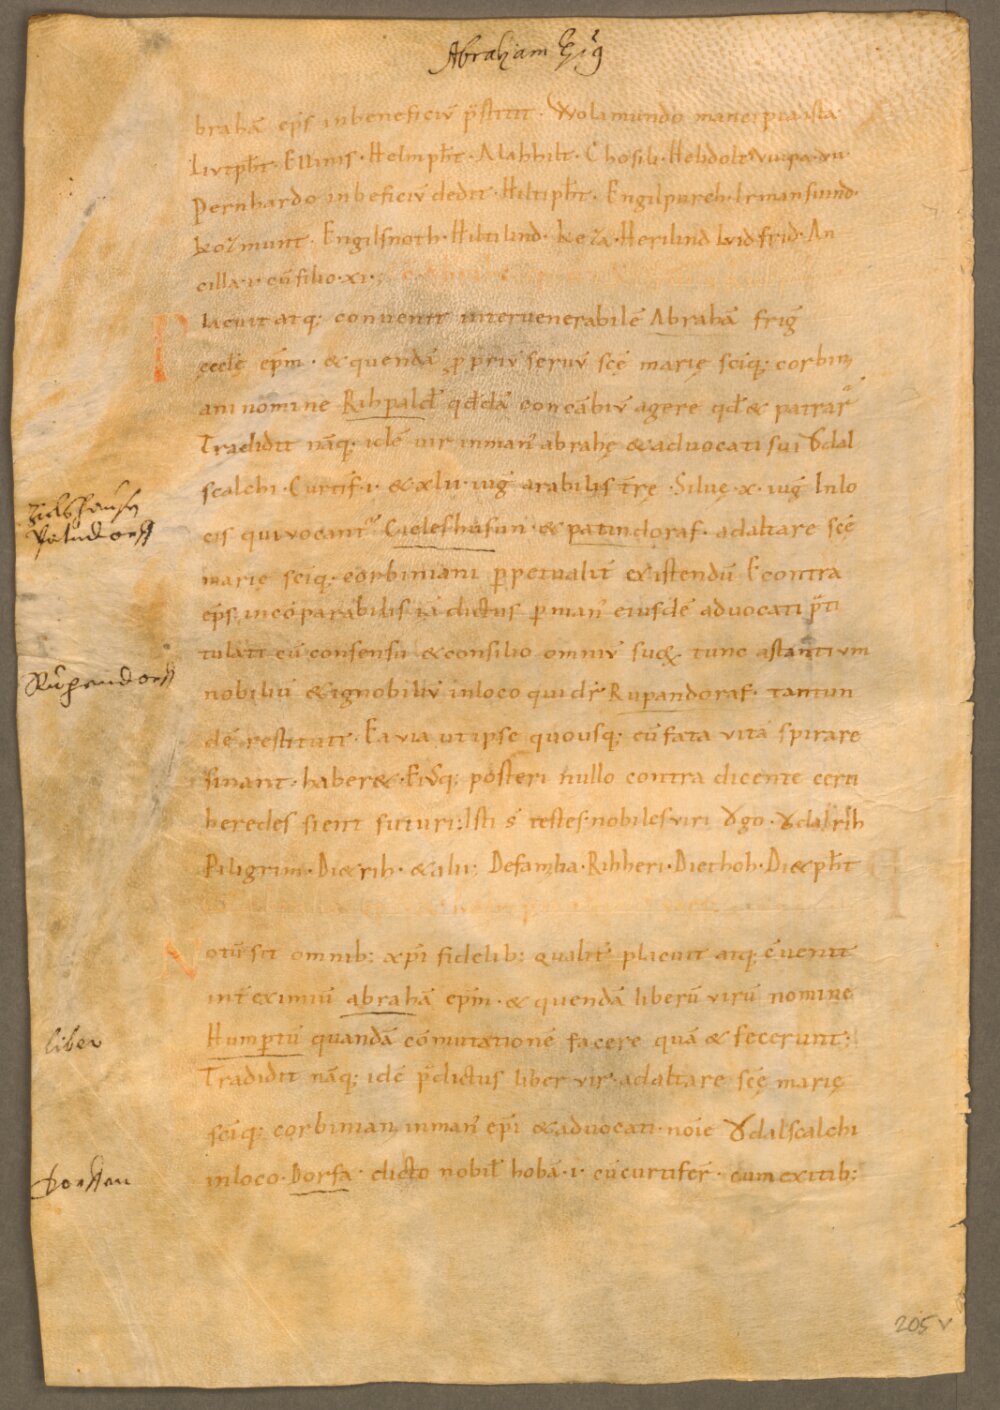 Abraham Ep̄s
brahā ep̄s in beneficiū p̄stitit · Wolimundo
Liutpħt · Ellinis · Helmpħt · Mahhilt · Chosili · Hebdolt
Pernhardo in beficiū dedit · Hiltipħt · Engilpurch · Irmansuind ·
Kozmunt · Engilsnoth · Hiltilind · Keza · Herilind Luidfrid · An
cilla · i · cū filio · xi ·
Placuit atq; conuenit inter uenerabilē Abrahā frig̅
ęcclę ep̄m · & quendā ꝓpriū seruū scę marię sciq; corbini
ani nomine Rihpald̄ qd̄dā concābiū agere qd̄ & patrar̄
Tradidit nāq; idē uir in man̄ abrahę & aduocati sui Odal
scalchi · Curtif · i · & xlii · iug̅ arabilis t̄rę · Siluę · x · iug̅ In lo
cis qui uocant̄ Cieleshusun · & patindoraf · ad altare scę
Zielshausn
Patndorff
marię sciq; corbiniani ꝑpetualit̄ existendū Econtra
ep̄s incōparabilis iā dictus ꝑ man̄ eiusdē aduocati p̄ti
tulati cū consensu & consilio omniū suoꝝ · tunc astantium
nobiliū & ignobiliū in loco qui dr̄ Rupandoraf · tantun
Rupendorff
dē restituit · Ea uia ut ipse quousq; eū fata uita spirare
sinant · haber& · Eiusq; posteri nullo contra dicente certi
heredes fient futuri; Isti s̄ testes · nobiles uiri Ogo · Odalrih
Piligrim · Di&rih · & alii; De famĩlia · Rihheri · Diethoh · Di&pħt
Notū sit omnib; xp̄i fidelib; qualit̄ placuit atq; euenit
int̄ eximiū abrahā ep̄m · & quendā liberū uirū nomine
Humptū quandā cōmutationē facere quā & fecerunt;
liber
Tradidit nāq; idē p̄dictus liber uir · ad altare scę marię
sciq; corbiniani in man̄ ep̄i & aduocati · noīe Odalscalchi
in loco · Dorfa · dicto nobil̄ hobā · i · cū curtifer̄ · cum exitib;
Dorffen
205 v